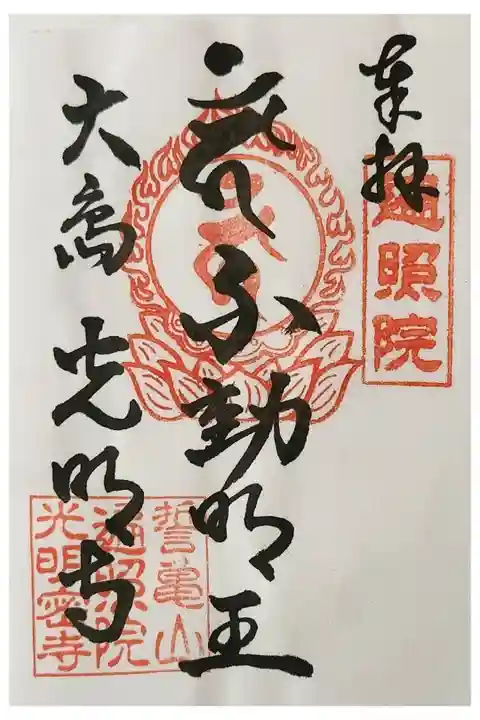 奉拝
遍照院
不動明王
大
光明寺
誓亀山
遍照院
光明密寺